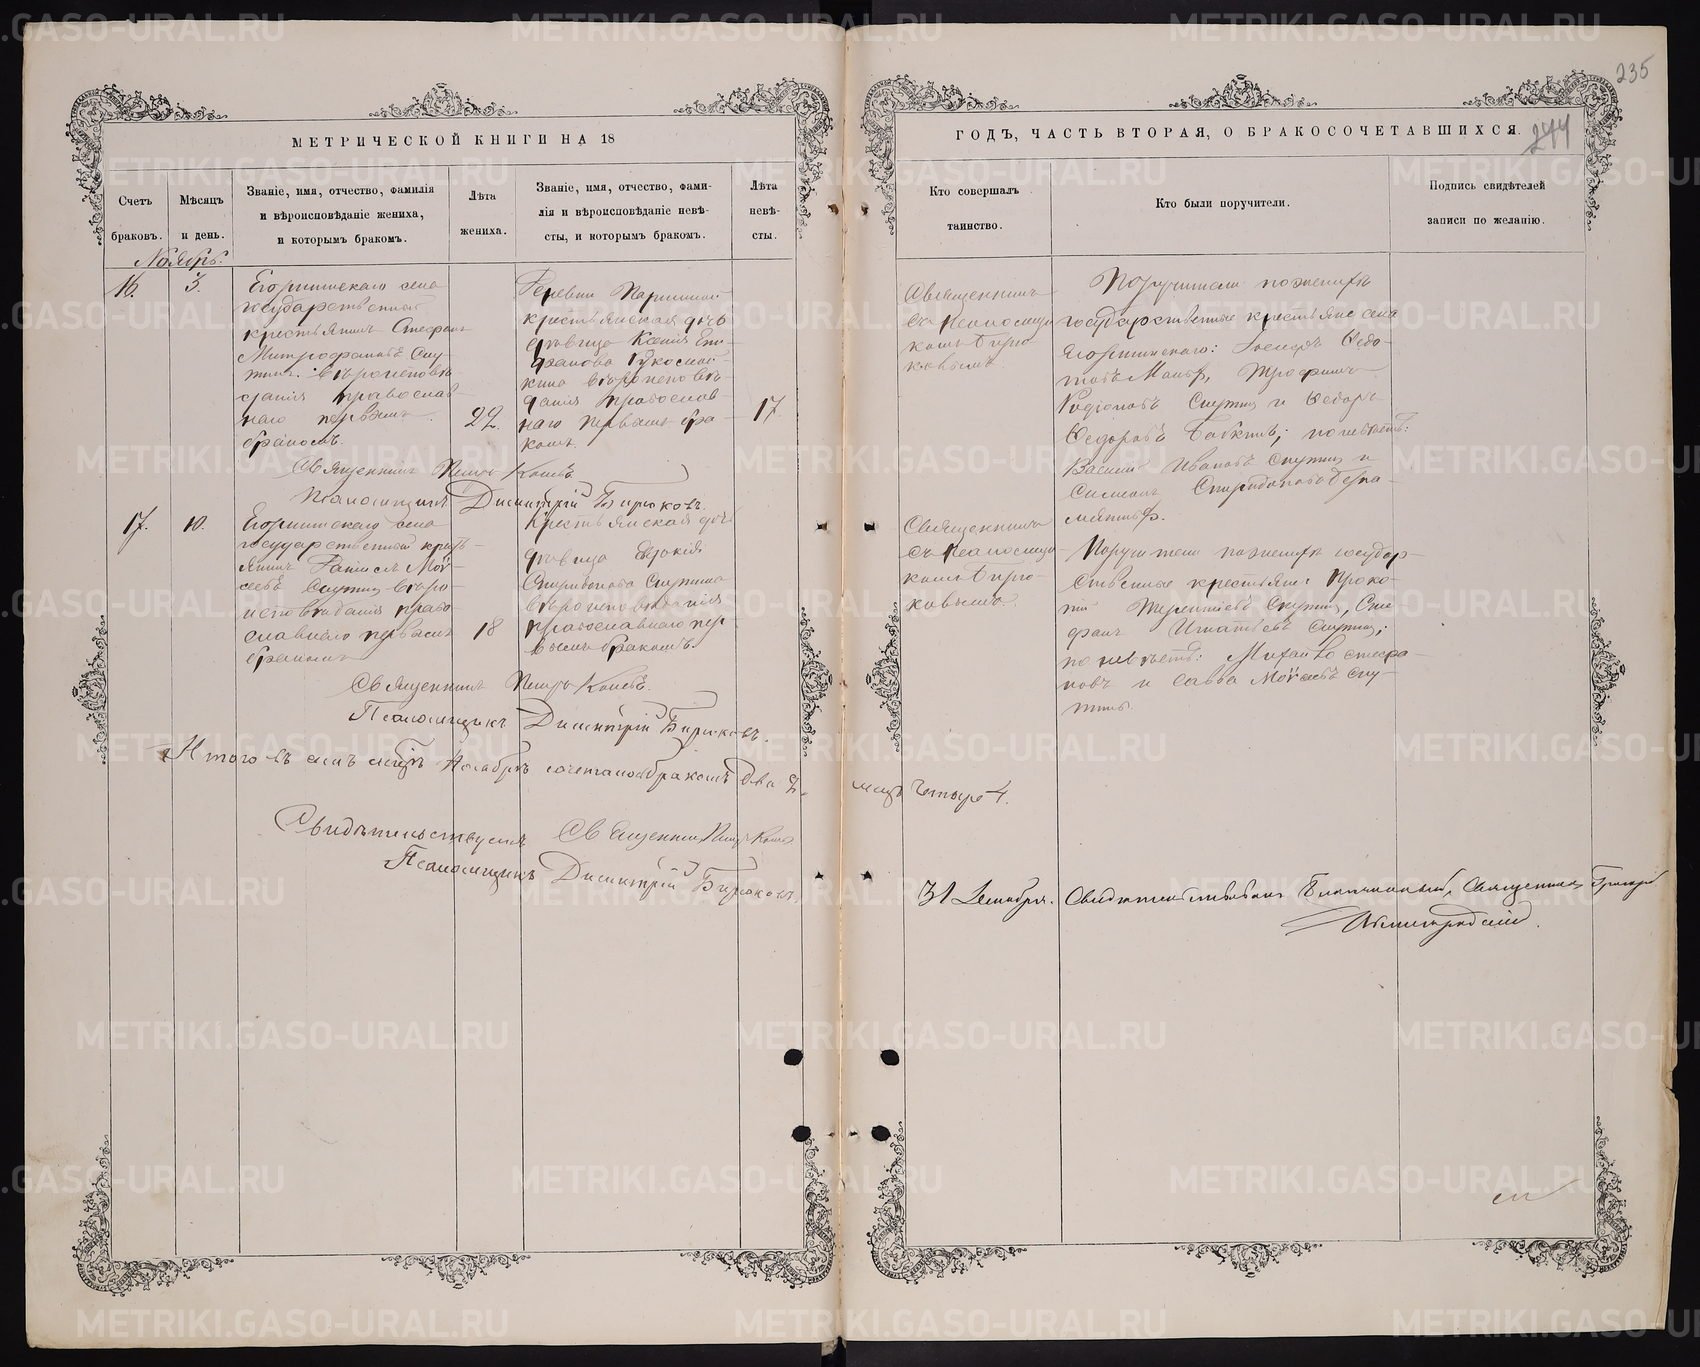 235
МЕТРИЧЕСКОЙ КНИГИ НА 18
ГОДЪ, ЧАСТЬ ВТОРАЯ, О БРАКОСОЧЕТАВШИХСЯ.
244
Счетъ браковъ.
Мѣсяцъ и день.
Званіе, имя, отчество, фамилія
и вѣроисповѣданіе жениха,
и которымъ бракомъ.
Лѣта жениха.
Званіе, имя, отчество, фами-
лія и вѣроисповѣданіе невѣ-
сты, и которымъ бракомъ.
Лѣта невѣ-
сты.
Кто совершалъ
таинство.
Кто были поручители.
Подпись свидѣтелей
записи по желанію.
Ноябрь.
16.
3.
села
государственной
крестьянинъ Стефанъ
Митрофановъ Ску-
тинъ. вѣроисповѣ-
данія православ-
наго первымъ
бракомъ.
22.
Деревни
крестьянская дочь
девица Ксенія
кина вѣроисповѣ-
данія православ-
наго первымъ бра-
комъ.
17.
Священникъ
съ псаломщи-
комъ Бирю-
ковымъ.
Поручители по женихѣ
государственные крестьяне села
Ѳедо-
товъ Трофимъ
Родіоновъ Скутин и Ѳедоръ
Ѳедоровъ по невѣстѣ:
Василій Ивановъ Скутин и
Симеонъ Спиридоновъ
Священникъ Петръ
Псаломщикъ Димитрій Бирюковъ.
17.
10.
села
государственный кресть-
янинъ Даніилъ Мои-
сеевъ Скутин вѣро-
исповѣданія право-
славнаго первымъ
бракомъ
18
Крестьянская дочь
девица Евдокія
Спиридонова Скутина
вѣроисповѣданія
православнаго пер-
вымъ бракомъ.
Священникъ
съ псаломщи-
комъ Бирю-
ковымъ.
Поручители по женихѣ государ-
ственные крестьяне: Проко-
пій Терентіевъ Скутин, Сте-
фанъ Игнатьевъ Скутин;
по невѣстѣ: Михаилъ Стефа-
новъ и Савва Моисеевъ Ску-
тины.
Священникъ Петръ
Псаломщикъ Димитрій Бирюковъ.
Итого въ семъ мѣсяцѣ Ноябрѣ сочеталось бракомъ два 2.
лицъ четыре 4.
Свидѣтельствуемъ Священникъ Петръ
Псаломщикъ Димитрій Бирюковъ.
31 Декабря. Свидѣтельствовалъ Благочинный, Священникъ Григорій
METRIKI.GASO-URAL.RU